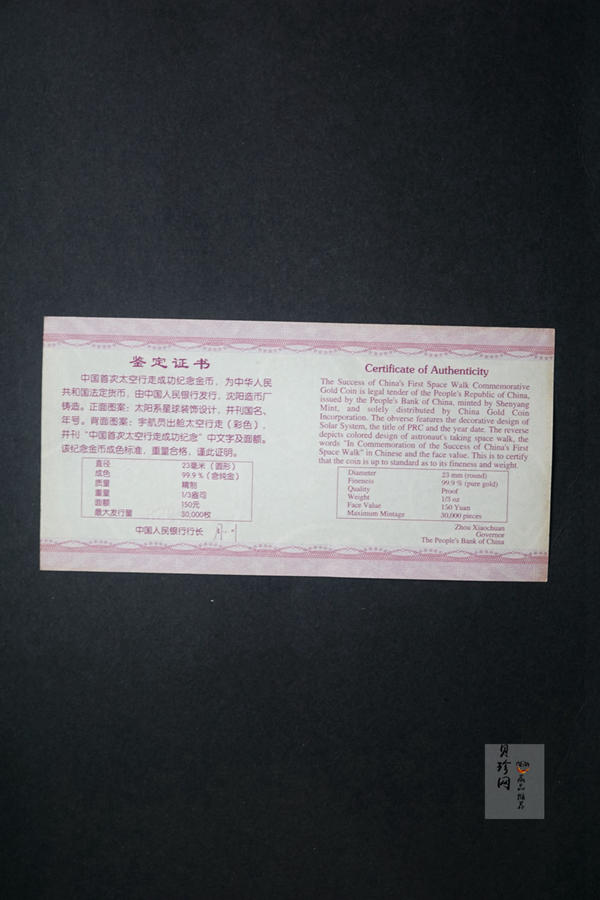 鉴定证书
中国首次太空行走成功纪念金币，为中华人民
共和国法定货币，由中国人民银行发行，沈阳造币厂
铸造。正面图案：太阳系星球装饰设计，并刊国名、
年号。背面图案：宇航员出舱太空行走（彩色），
并刊“中国首次太空行走成功纪念”中文字及面额。
该纪念金币成色标准，重量合格，谨此证明。
直径 23毫米（圆形）
成色 99.9％（含纯金）
质量 精制
重量 1/3盎司
面额 150元
最大发行量 30,000枚
中国人民银行行长
Certificate of Authenticity
The Success of China's First Space Walk Commemorative
Gold Coin is legal tender of the People's Republic of China,
issued by the People's Bank of China, minted by Shenyang
Mint, and solely distributed by China Gold Coin
Incorporation. The obverse features the decorative design of
Solar System, the title of PRC and the year date. The reverse
depicts colored design of astronaut's taking space walk, the
words "In Commemoration of the Success of China's First
Space Walk" in Chinese and the face value. This is to certify
that the coin is up to standard as to its fineness and weight.
Diameter 23 mm (round)
Fineness 99.9 % (pure gold)
Quality Proof
Weight 1/3 oz
Face Value 150 Yuan
Maximum Mintage 30,000 pieces
Zhou Xiaochuan
Governor
The People's Bank of China
贝珍网
藏品推荐